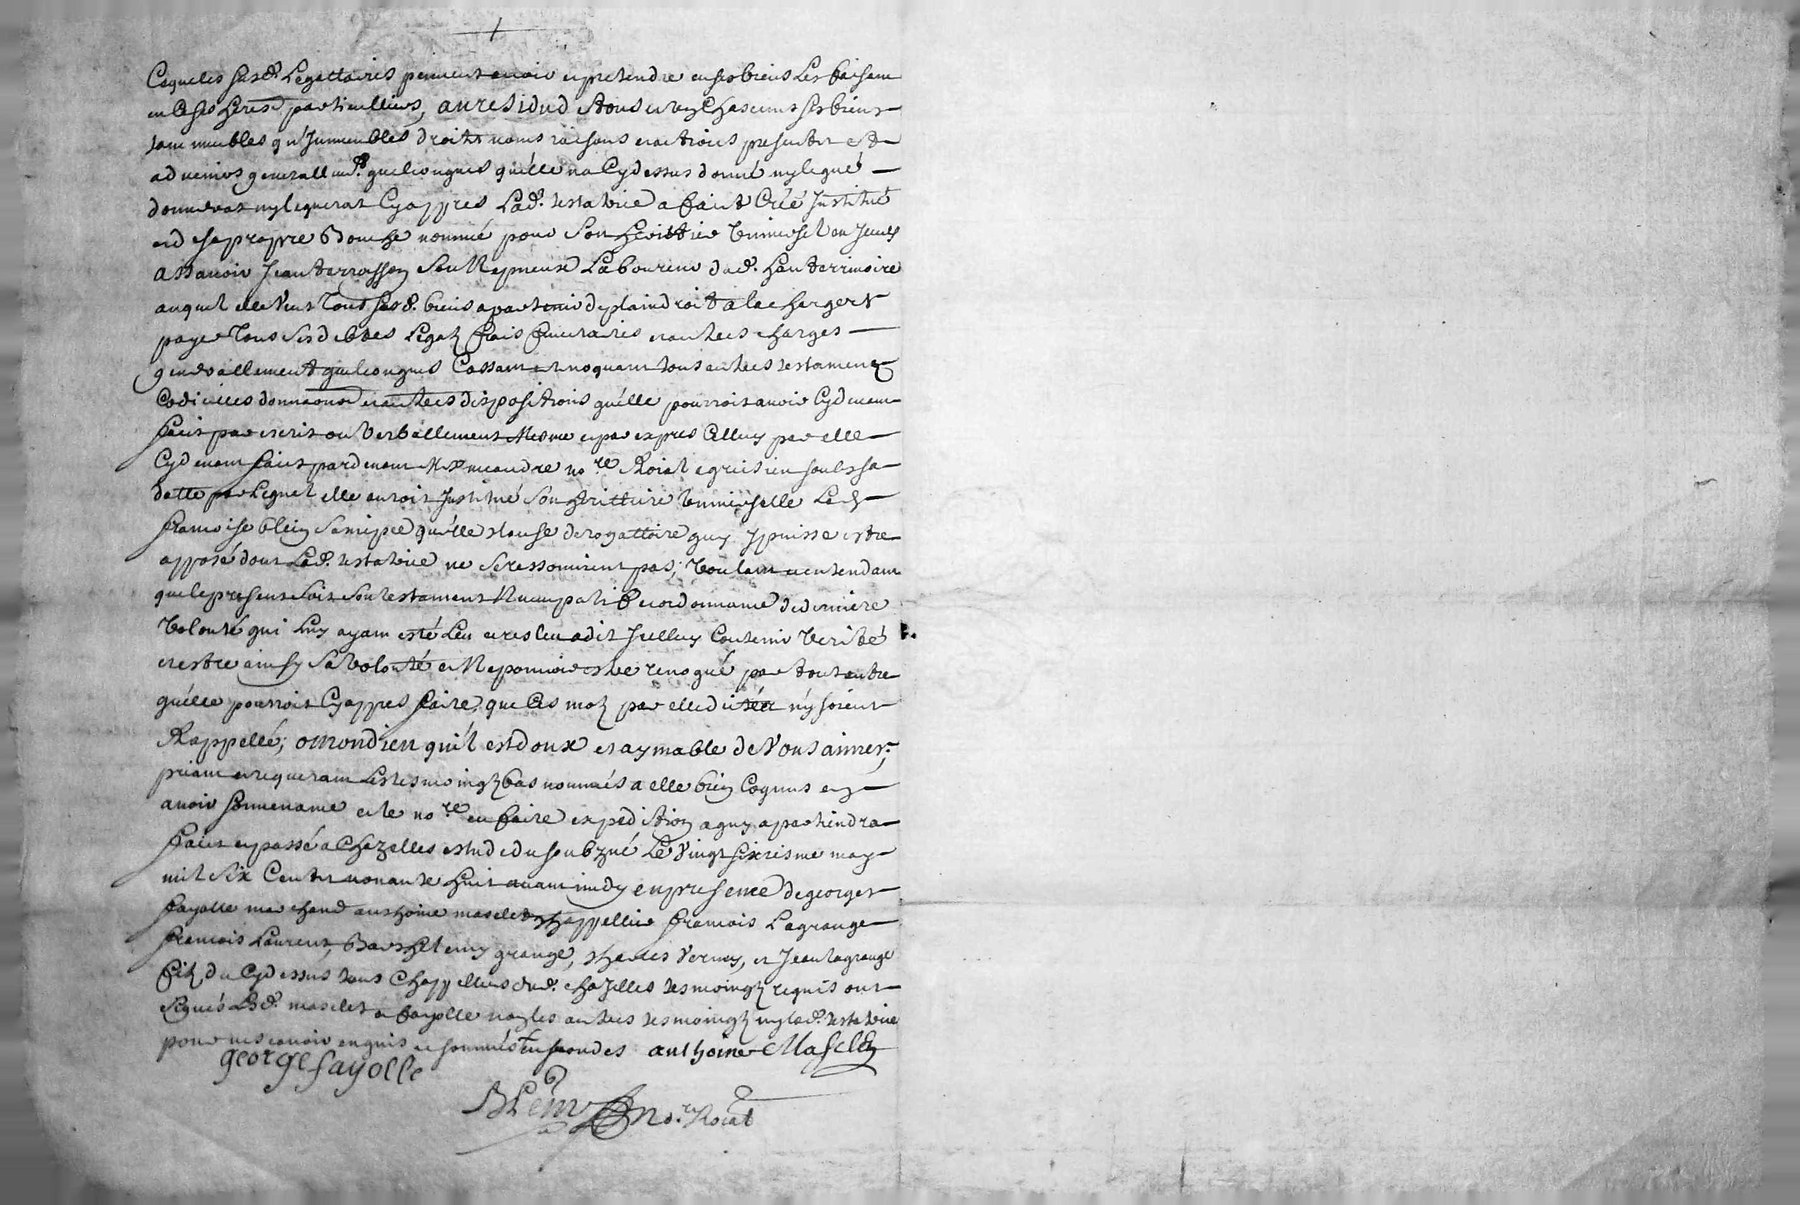 Ce que les susd. Legattaires peuvent avoir et pretendre en ses biens Les faisant
en ce ses heres particulliers, au residud de tous et ung chascuns ses biens
tant meubles qu'Immeubles droits noms raisons et actions presents et
advenirs generallemt. quelconques qu'elle na Cydessus donné ny legué
donneras ny leguerat Cyappres Lad. testatrice a fait Créé Institué
et de sa propre Bouche nommé pour Son heritier Universel en seul
assavoir Jean terrasson Son Nepveux Laboureur dud. hauterrivoire
auquel elle veut Tous sesd. biens apartenir de plain droit a la charger
payer Tous ses debtes Legatz frais funeraires et autres charges
generallement quelconques Cassant revoquant tous autres testamentz
Codicilles donnaons et autres dispositions qu'elle pourroit avoir Cydevant
faict par escrit ou Verballement Mesme et par expres Celluy par elle
Cydevant fait pardevant Me meandre no.re Roial et receu soubs sa
datte par Lequel elle auroit Institué Son herittiere Universelle Lad.
francoise blein sa niepce qu'elle clause derogattoire quy y puisse estre
apposé dont Lad. testatrice ne se ressouvient pas; Voulant et entendant
que le present soit Son testament Nuncupatif et ordonnance de derniere
Volonté qui Luy ayant esté Leu et releu a dit Icelluy Contenir Verité
et estre ainsy sa volonté et Ne pouvoir estre revoqué par tout autre
qu'elle pourroit Cyappres faire, que Ces motz par elle dictés n'y soient
Rappellé; o mon dieu qu'il est doux et aymable de Vous aimer;
priant et requerant Les tesmoingtz bas nommés a elle bien Cognus en
avoir souvenance et le no.re en faire expedition a quy apartiendra
faict et passé a Chazelles estude du soubzné Le Vingt sixiesme may
mil six Centz nonante huit avant midy en presence de george
fayolle marchand anthoine masclet chappellier francois Lagrange
francois Laurent, Barthelemy grange, charles Vernay, et Jean lagrange
filz du Cydessus tous Chappelliers dud. chazelles tesmoingtz requis ont
signés Lesd. masclet et fayolle non les autres tesmoingtz ny lad. testatrice
pour ne scavoir enquis et sommés anthoine Masclet
george fayolle
Blein no.re Roial